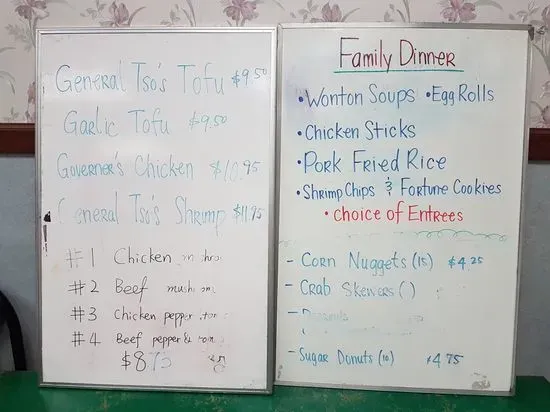 General Tso's Tofu $9.50
Garlic Tofu $9.50
Governer's Chicken $10.95
General Tso's Shrimp $11.95
#1 Chicken
#2 Beef
#3 Chicken pepper
#4 Beef pepper &
Family Dinner
• Wonton Soups • Egg Rolls
• Chicken Sticks
• Pork Fried Rice
• Shrimp Chips & Fortune Cookies
• Choice of Entrees
- Corn Nuggets (15) $4.25
- Crab Skewers ( )
- Sugar Donuts (10) $4.75